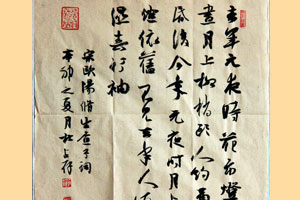 去年元夜時花市燈
晝月上柳梢頭人約黃
後今年元夜時月
依舊不見去年人
濕春衫袖
宋歐陽修生查子詞
之夏月